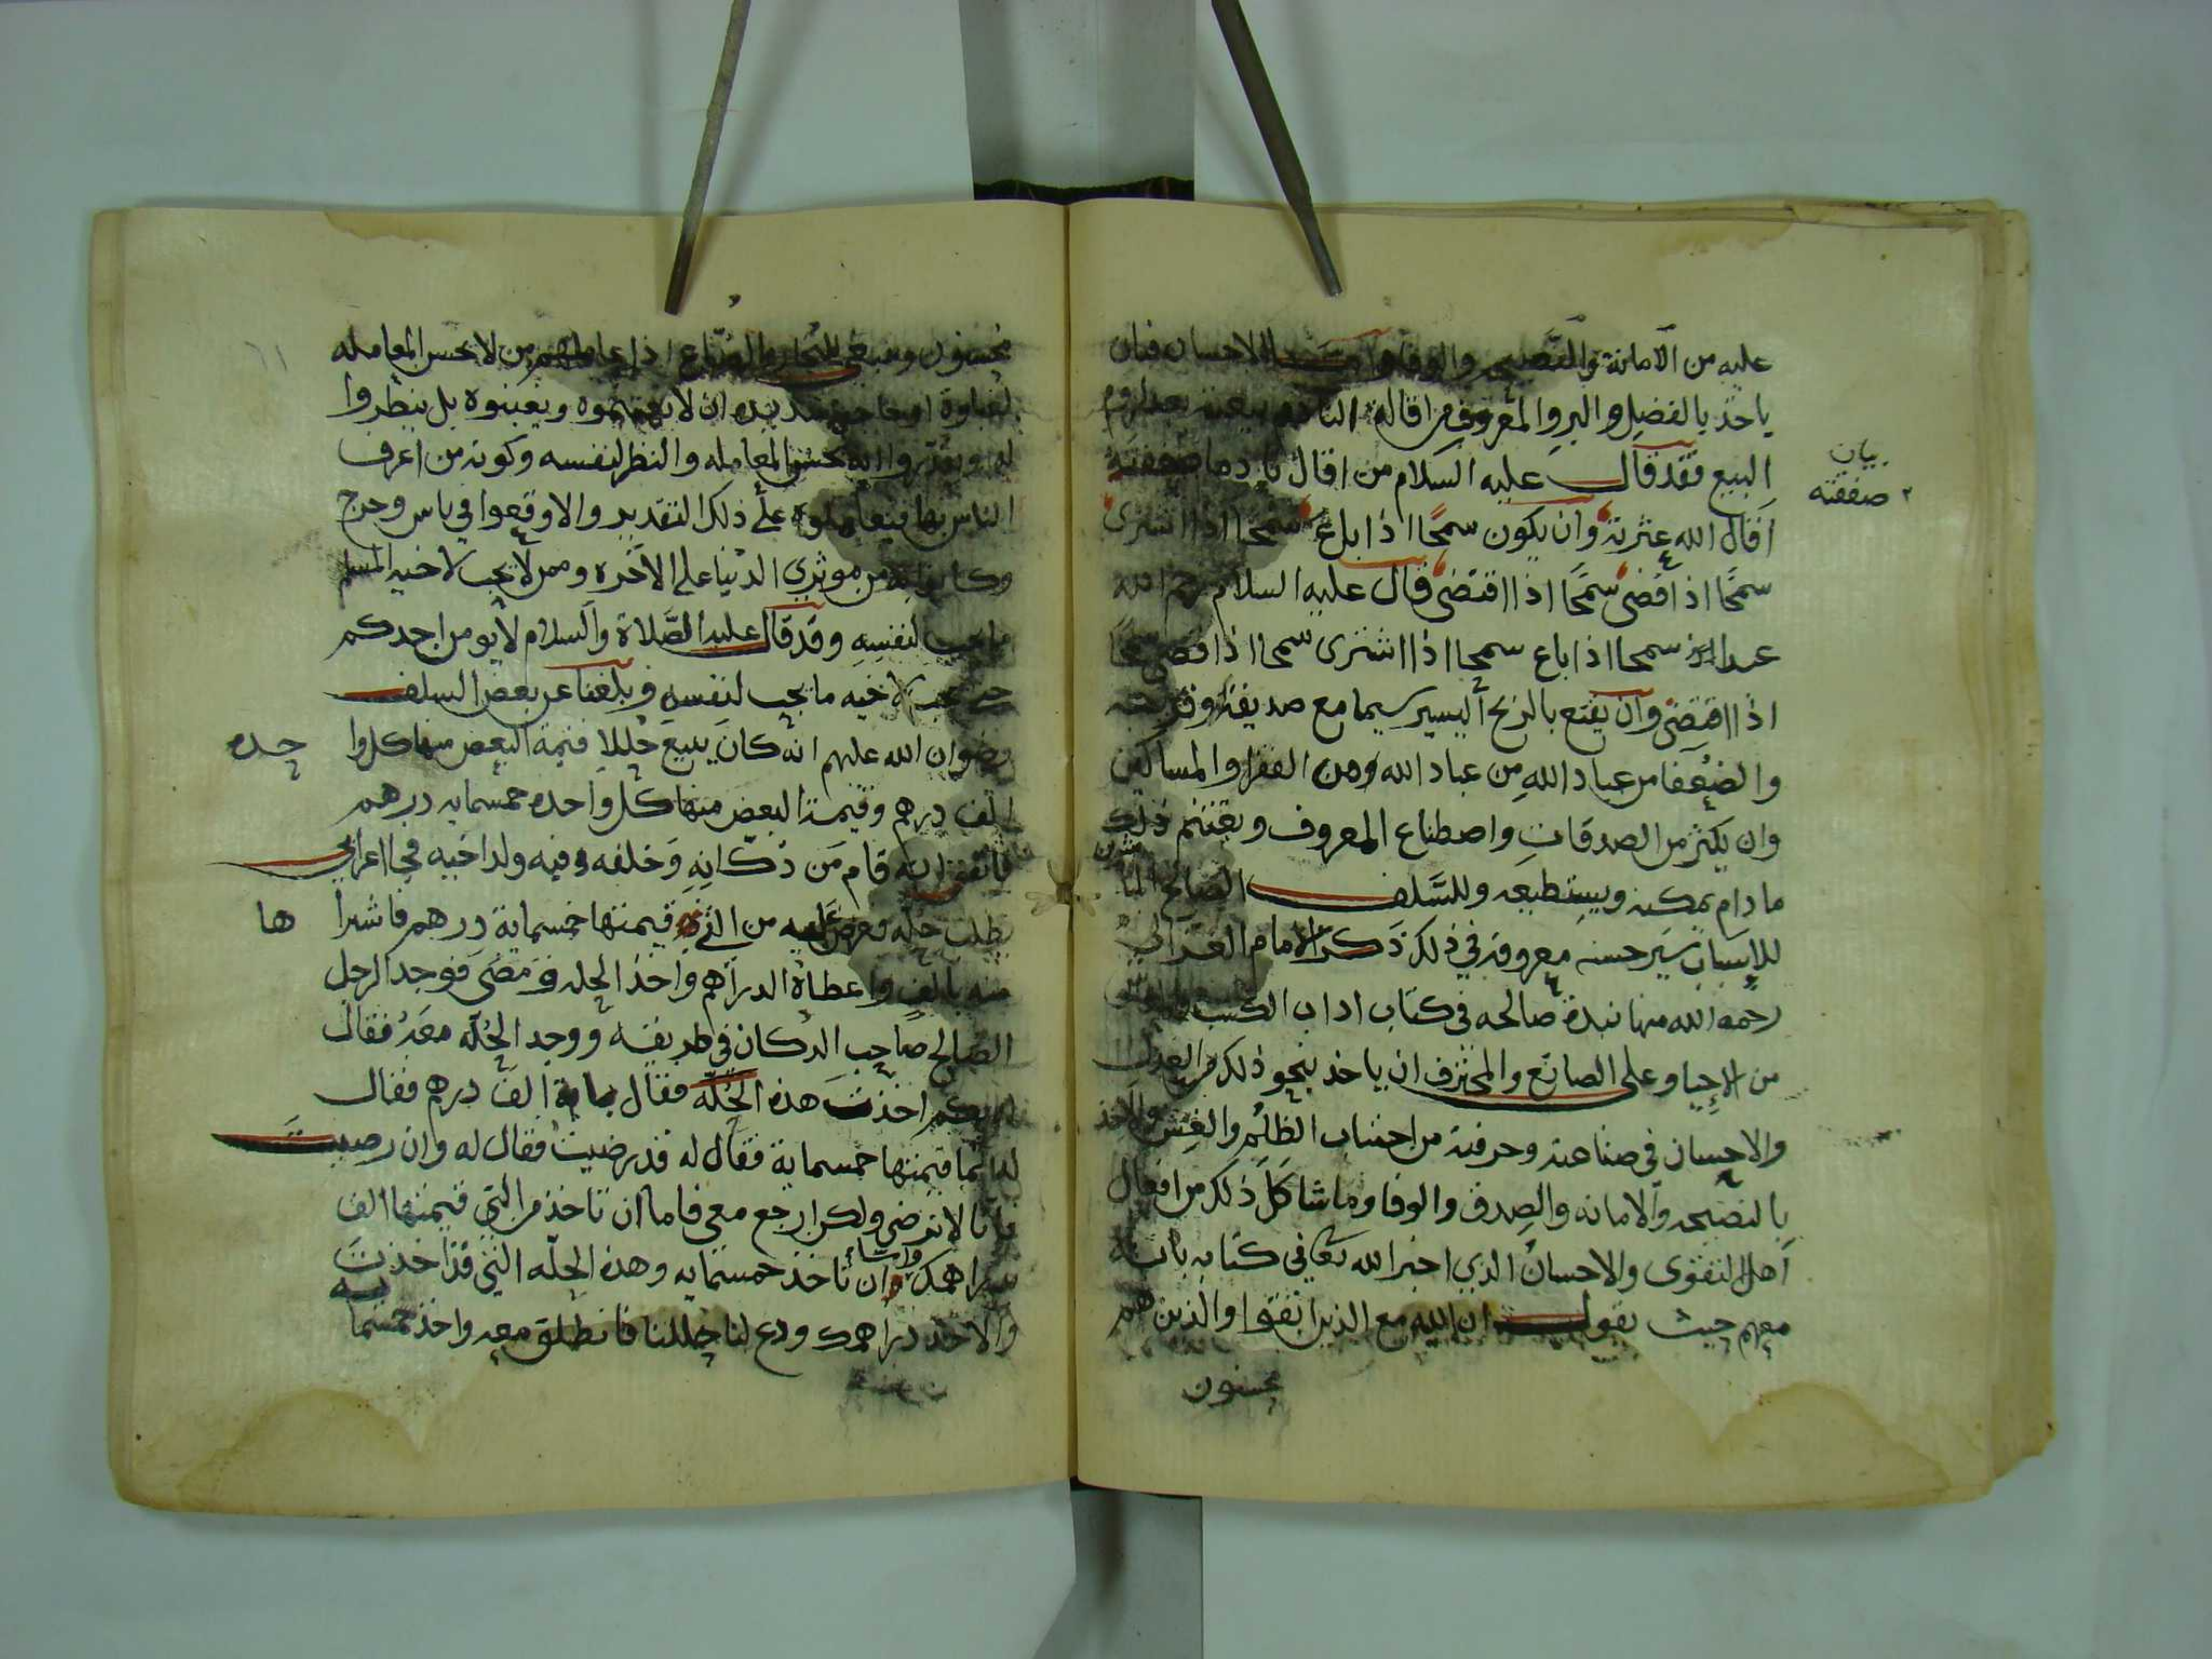 عليه من الامانة والنصيحه والوفا واما الاحسان فبان
ياخذ بالفضل والبر والمعروف من اقالة النادم ببيعته بعد لزوم
البيع فقد قال عليه السلام من اقال نادما صفقته
بيان
صفقته
اقال الله عثرته وان يكون سمحا اذا باع سمحا اذا اشترى
سمحا اذا قضى سمحا اذا اقتضى قال عليه السلام رحم الله
عبدا سمحا اذا باع سمحا اذا اشترى سمحا اذا قضى سمحا
اذا اقتضى وان يقنع بالربح اليسير سيما مع صديقه
والضعفا من عباد الله ومن الفقرا والمساكين
وان يكثر من الصدقات واصطناع المعروف ويغتنم ذلك
ما دام يمكنه ويستطيعه وللسلف الصالح
للاسباب سير حسنه معروفه في ذلك ذكر الامام الغزالي
رحمه الله منها نبذة صالحه في كتاب اداب الكسب
من الاحيا وعلى الصانع والمحترف ان ياخذ بنحو ذلك من العدل
والاحسان في صناعته وحرفته من اجتناب الظلم والغش والاخذ
بالنصيحه والامانه والصدق والوفا وما شاكل ذلك من افعال
اهل التقوى والاحسان الذي اخبر الله تعالى في كتابه بانه
معهم حيث يقول ان الله مع الذين اتقوا والذين هم
محسنون
٦١
محسنون وينبغي للتجار والصناع اذا عاملهم من لا يحسن المعامله
لغباوة او حاجة ان لا ويغبنوه بل ينظروا
له ويقدروا انه يحسن المعامله والنظر لنفسه وكونه من اعرف
الناس بها فيعاملوه على ذلك التقدير والا وقعوا في باس وحرج
وكانوا من موثري الدنيا على الاخره وممن لا يحب لاخيه المسلم
ما يحب لنفسه وقد قال عليه الصلاة والسلام لا يومن احدكم
حتى يحب لاخيه ما يحب لنفسه وبلغنا عن بعض السلف
رضوان الله عليهم انه كان يبيع حللا قيمة البعض منها كل وا
حده
الف درهم وقيمة البعض منها كل واحده خمسمايه درهم
فاتفق انه قام من دكانه وخلفه فيه ولد اخيه فجا اعرابي
يطلب حله فعرض عليه من التي قيمتها خمسماية درهم فاشترا
ها
منه بالف واعطاه الدراهم واخذ الحله ومضى فوجد الرجل
الصالح صاحب الدكان في طريقه ووجد الحله معه فقال
له بكم اخذت هذه الحله فقال بالف درهم فقال
له انما قيمتها خمسماية فقال له قد رضيت فقال له وان رضيت
فانا لا نرضى ولكن ارجع معي فاما ان تاخذ من التي قيمتها الف
بدراهمك واما ان تاخذ خمسمايه وهذه الحله التي قد اخذت
والا خذ دراهمك ودع لنا حللنا فانطلق معه واخذ خمسما
يه